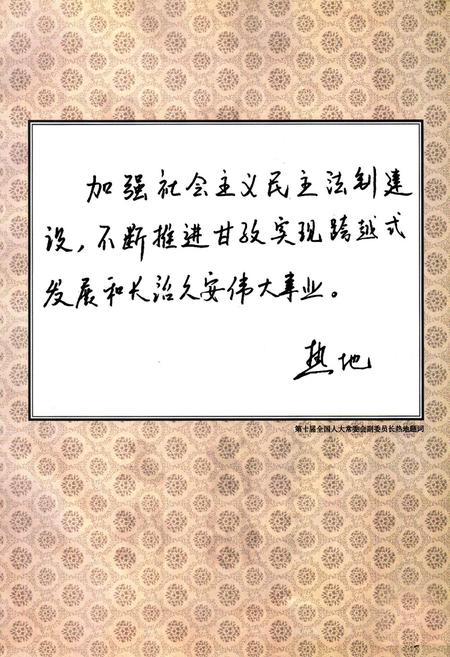 加强社会主义民主法制建
设，不断推进甘孜实现跨越式
发展和长治久安伟大事业。
热地
第十届全国人大常委会副委员长热地题词